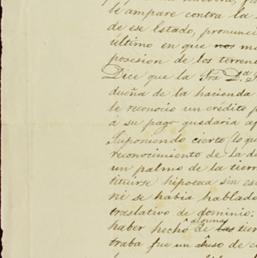 le ampare contra la
de ese Estado, pronunci
último en que nos m
posesion de los terren
Dice que la Sra Da
dueña de la hacienda
le reconocio un crédito
á su pago quedaria a
Suponiendo cierto lo qu
reconocimiento de la d
un palmo de la tierr
tituirse hipoteca sin es
ni se habia hablado
traslativo de dominio;
algunas
haber hecho de las tier
traba fue un abuso de c